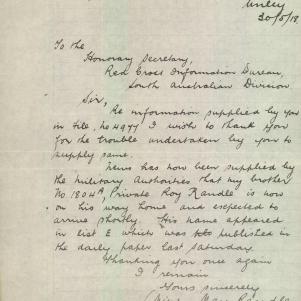 Unley
30/5/18
To the
Honorary Secretary,
Red Cross Information Bureau,
South Australian Division
Sir,
Re information supplied by you
in file, No 4977 I wish to thank you
for the trouble undertaken by you to
supply same.
News has now been supplied by
the Military Authorities that my brother
No 1804A, Private Roy Randle is now
on his way home and expected to
arrive shortly. His name appeared
in list E which was published in
the daily paper last Saturday.
Thanking you once again
I remain
Yours sincerely